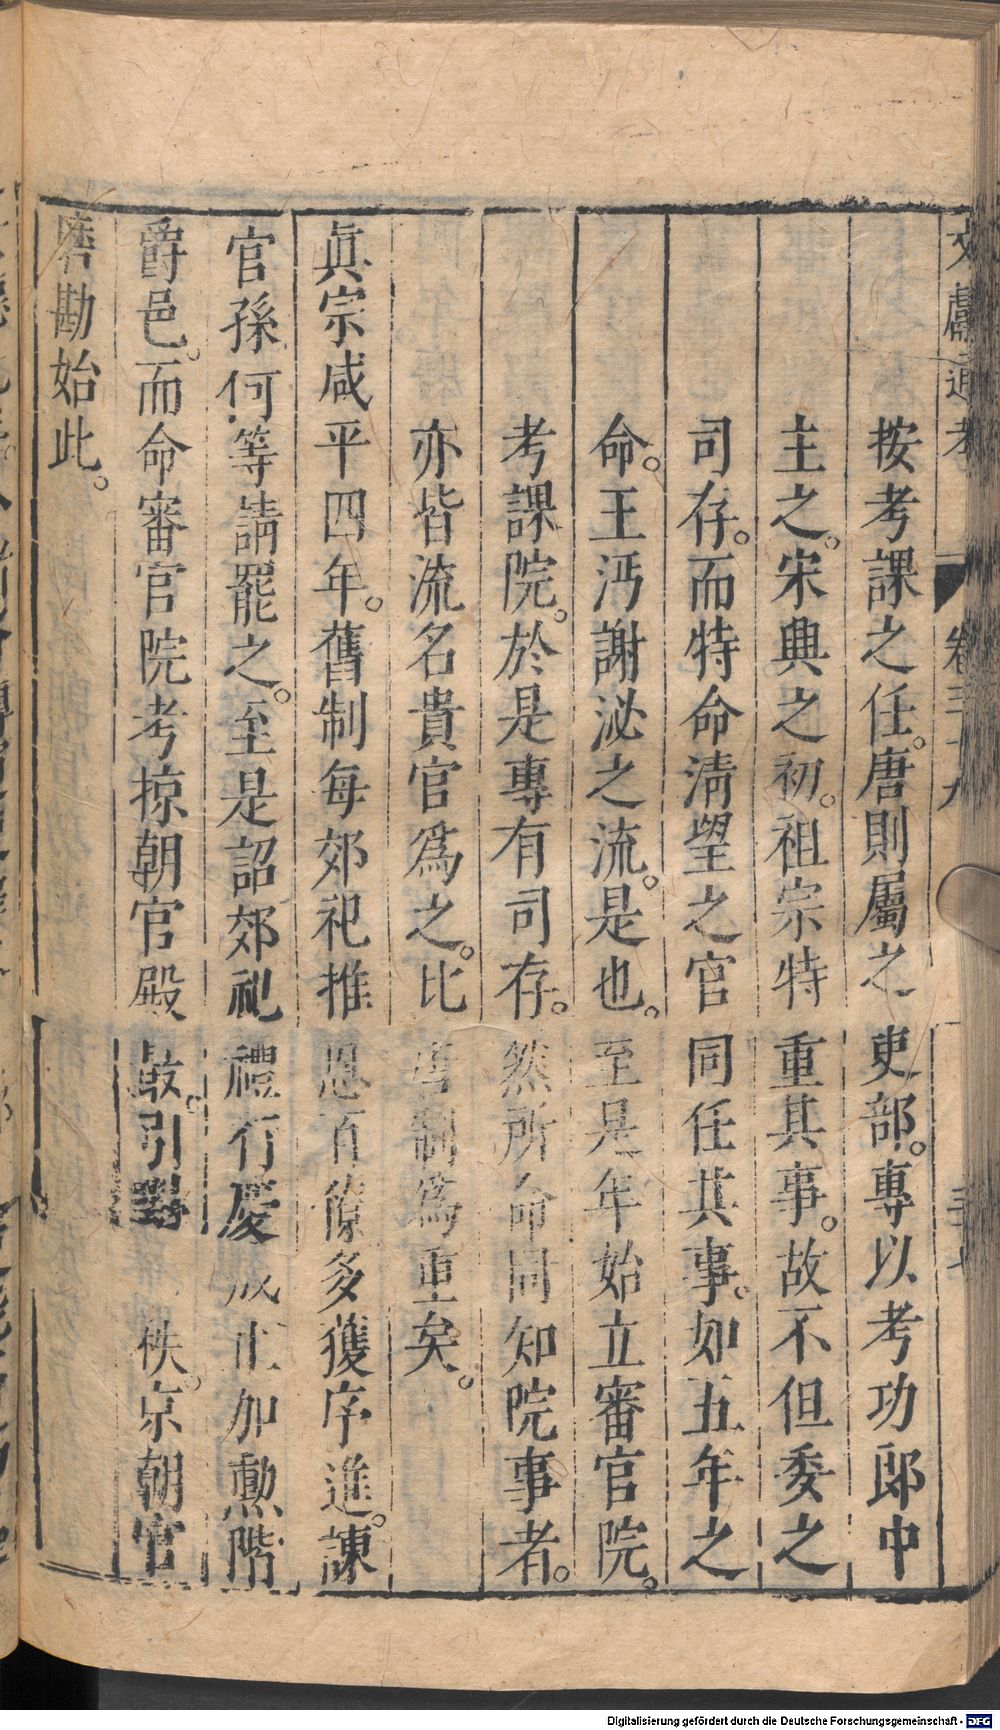 文獻通考 卷三十九
按考課之任。唐則屬之吏部。專以考功郎中
主之。宋興之初。祖宗特重其事。故不但委之
司存。而特命清望之官同任其事。如五年之
命。王沔謝泌之流。是也。至是年始立審官院。
考課院。於是專有司存。然所命同知院事者。
亦皆流名貴官爲之。比舊制爲重矣。
眞宗咸平四年。舊制每郊祀推恩百僚多獲序進。諫
官孫何等請罷之。至是詔郊祀禮行慶成止加勲階
爵邑。而命審官院考掠朝官殿最。引對秩。京朝官
磨勘始此。
Digitalisierung gefördert durch die Deutsche Forschungsgemeinschaft - DFG